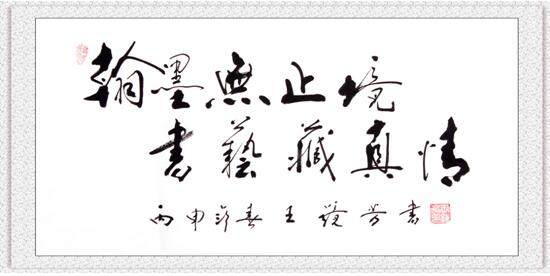 翰墨無止境
書藝藏真情
丙申新春王芳書